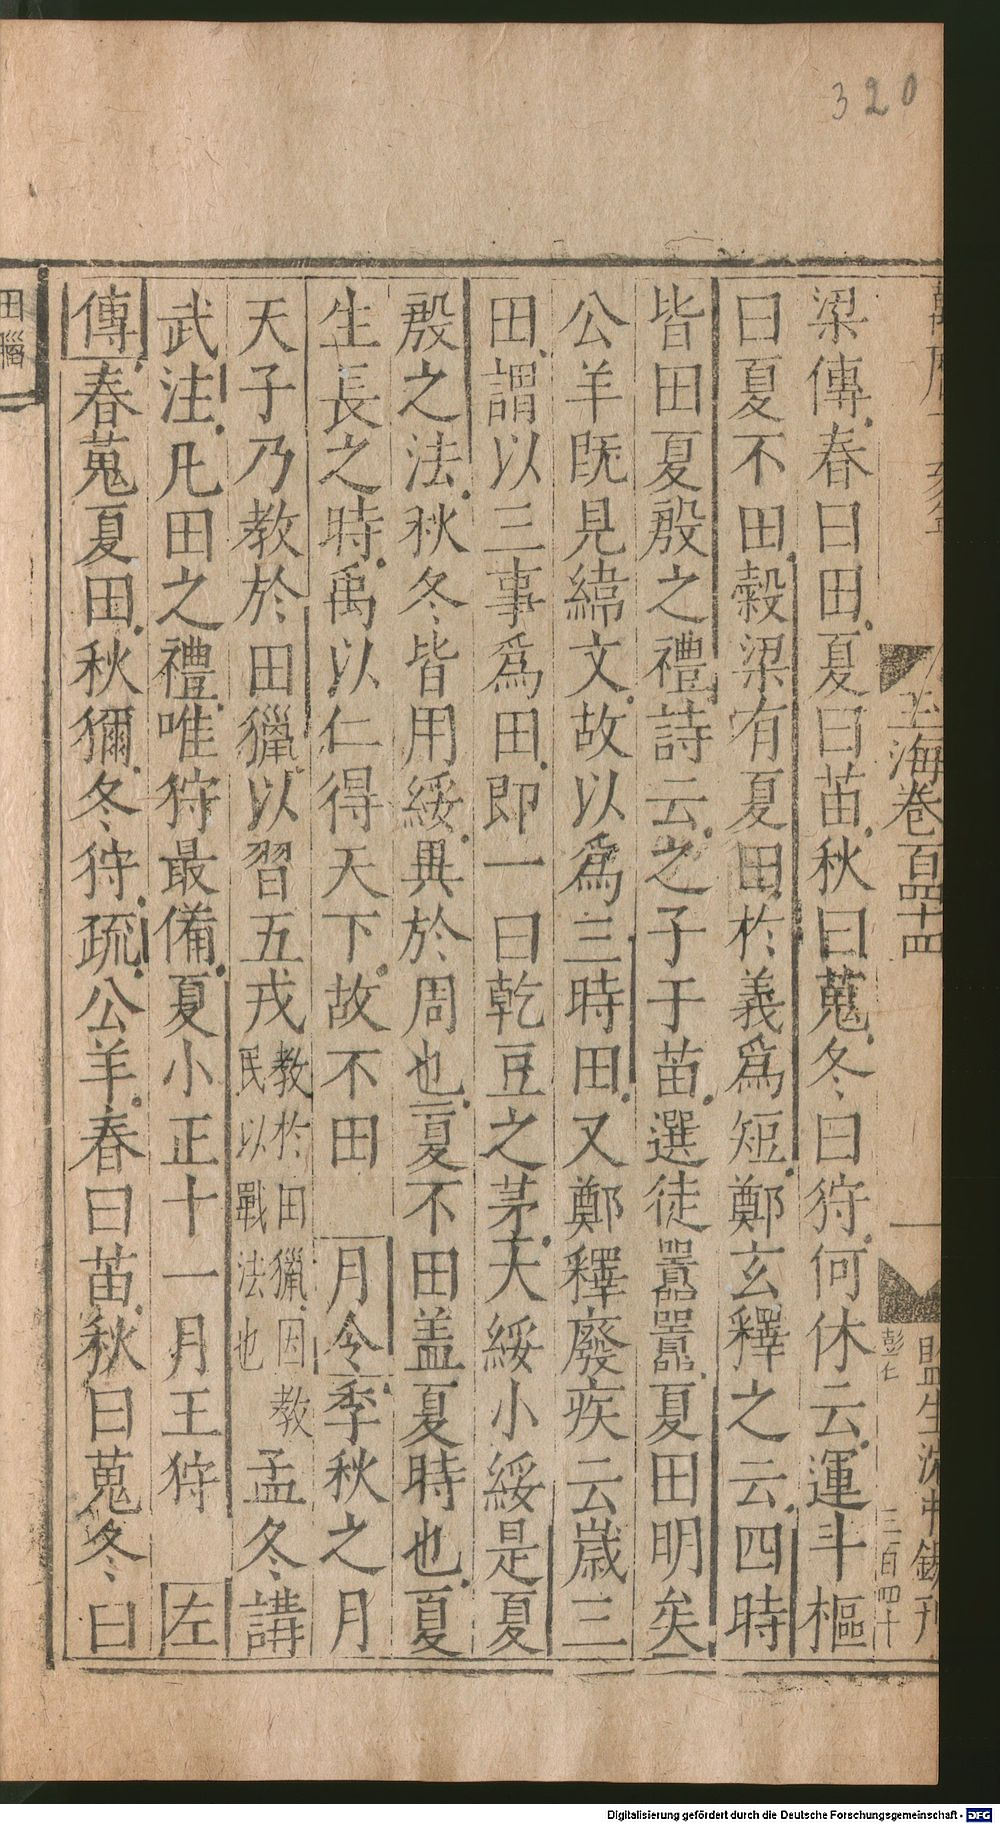 320
玉海卷百四十四
一
彭仁
三百四十
梁傳春曰田夏曰苗秋曰蒐冬曰狩何休云運斗樞
曰夏不田穀梁有夏田於義爲短鄭玄釋之云四時
皆田夏殷之禮詩云之子于苗選徒囂囂夏田明矣
公羊既見緯文故以爲三時田又鄭釋廢疾云歲三
田謂以三事爲田即一曰乾豆之茅大綏小綏是夏
殷之法秋冬皆用綏異於周也夏不田盖夏時也夏
生長之時禹以仁得天下故不田 月令季秋之月
天子乃教於田獵以習五戎教於田獵因教民以戰法也孟冬講
武注凡田之禮唯狩最備夏小正十一月王狩 左
傳春蒐夏田秋獮冬狩疏公羊春曰苗秋曰蒐冬曰
田獵
Digitalisierung gefördert durch die Deutsche Forschungsgemeinschaft - DFG